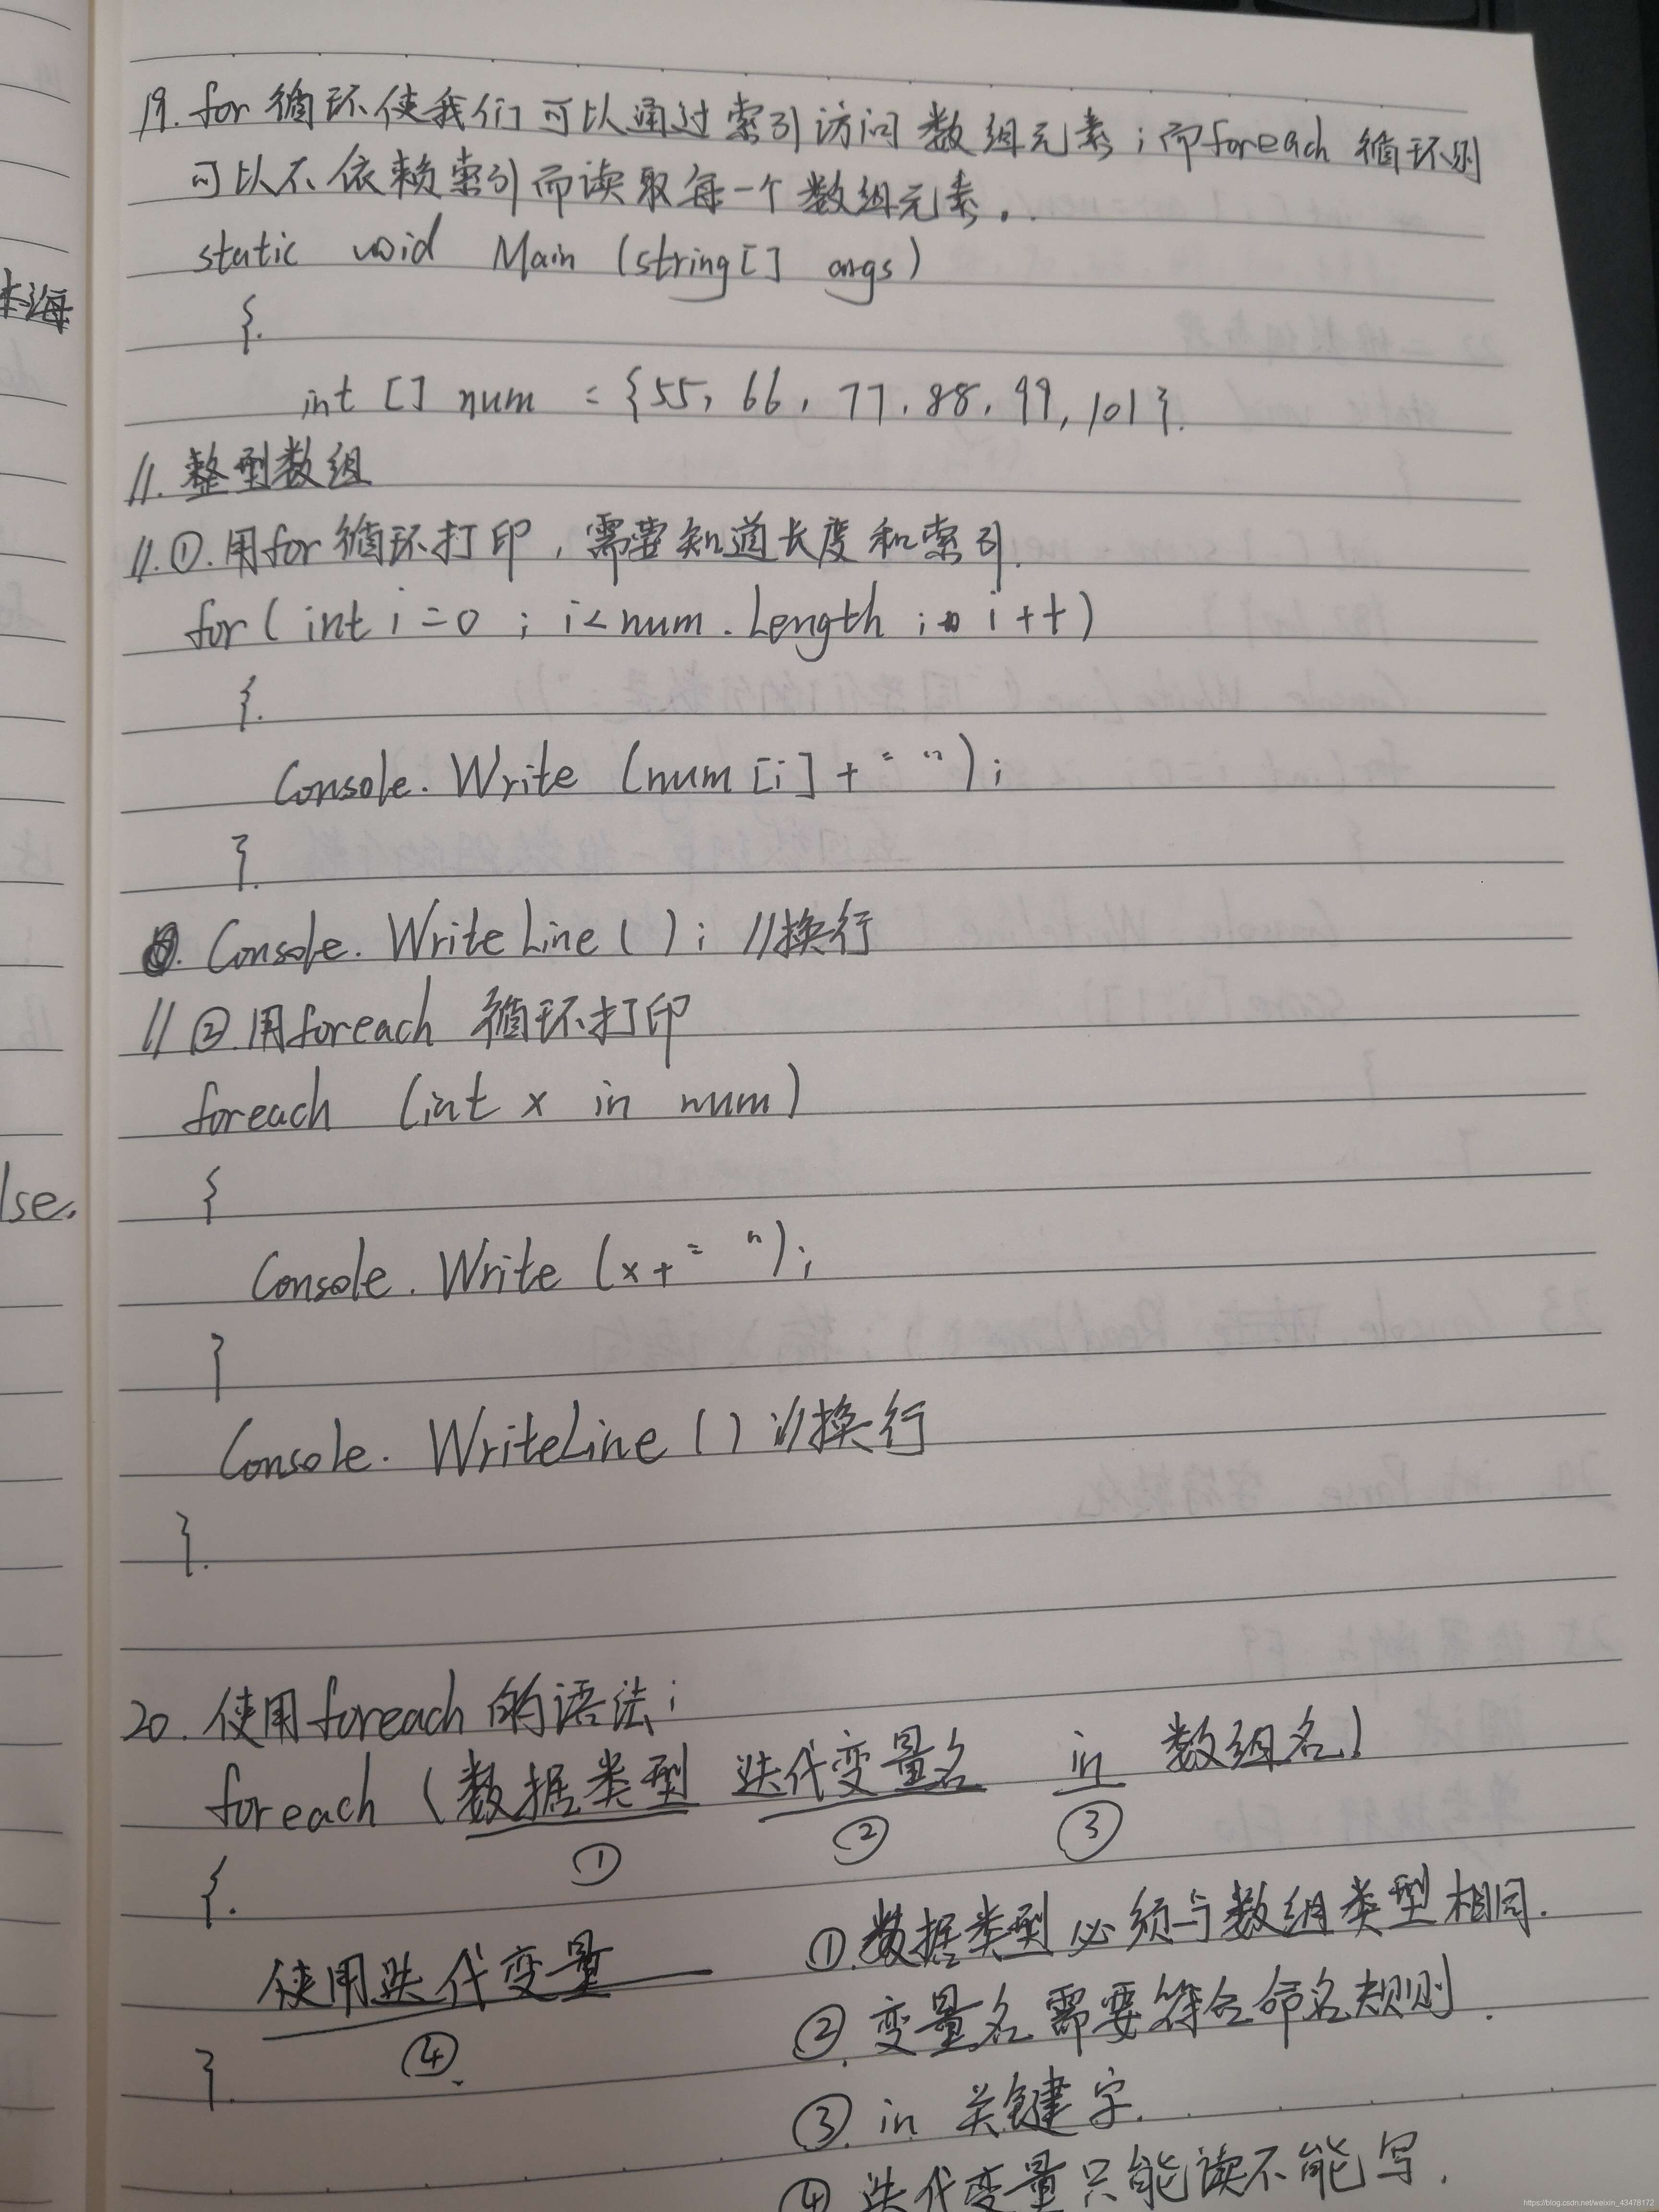 19. for 循环使我们可以通过索引访问数组元素；而foreach 循环则
可以不依赖索引而读取每一个数组元素。
static void Main (string[] args)
{
int [] num = {55, 66, 77, 88, 99, 101}
// 整型数组
// ① 用for循环打印，需要知道长度和索引
for( int i=0 ; i<num.Length ; i++)
{
Console.Write (num [i] + " ");
}
Console.WriteLine ( ); //换行
// ② 用foreach 循环打印
foreach (int x in num)
{
Console.Write (x + " ");
}
Console.WriteLine () //换行
}
20. 使用foreach 的语法；
foreach (数据类型 迭代变量名 in 数组名)
① ② ③
{
使用迭代变量
④
}
①.数据类型必须与数组类型相同.
②.变量名需要符合命名规则.
③. in 关键字.
④ 迭代变量只能读不能写.
本海
lse.
https://blog.csdn.net/weixin_43478172